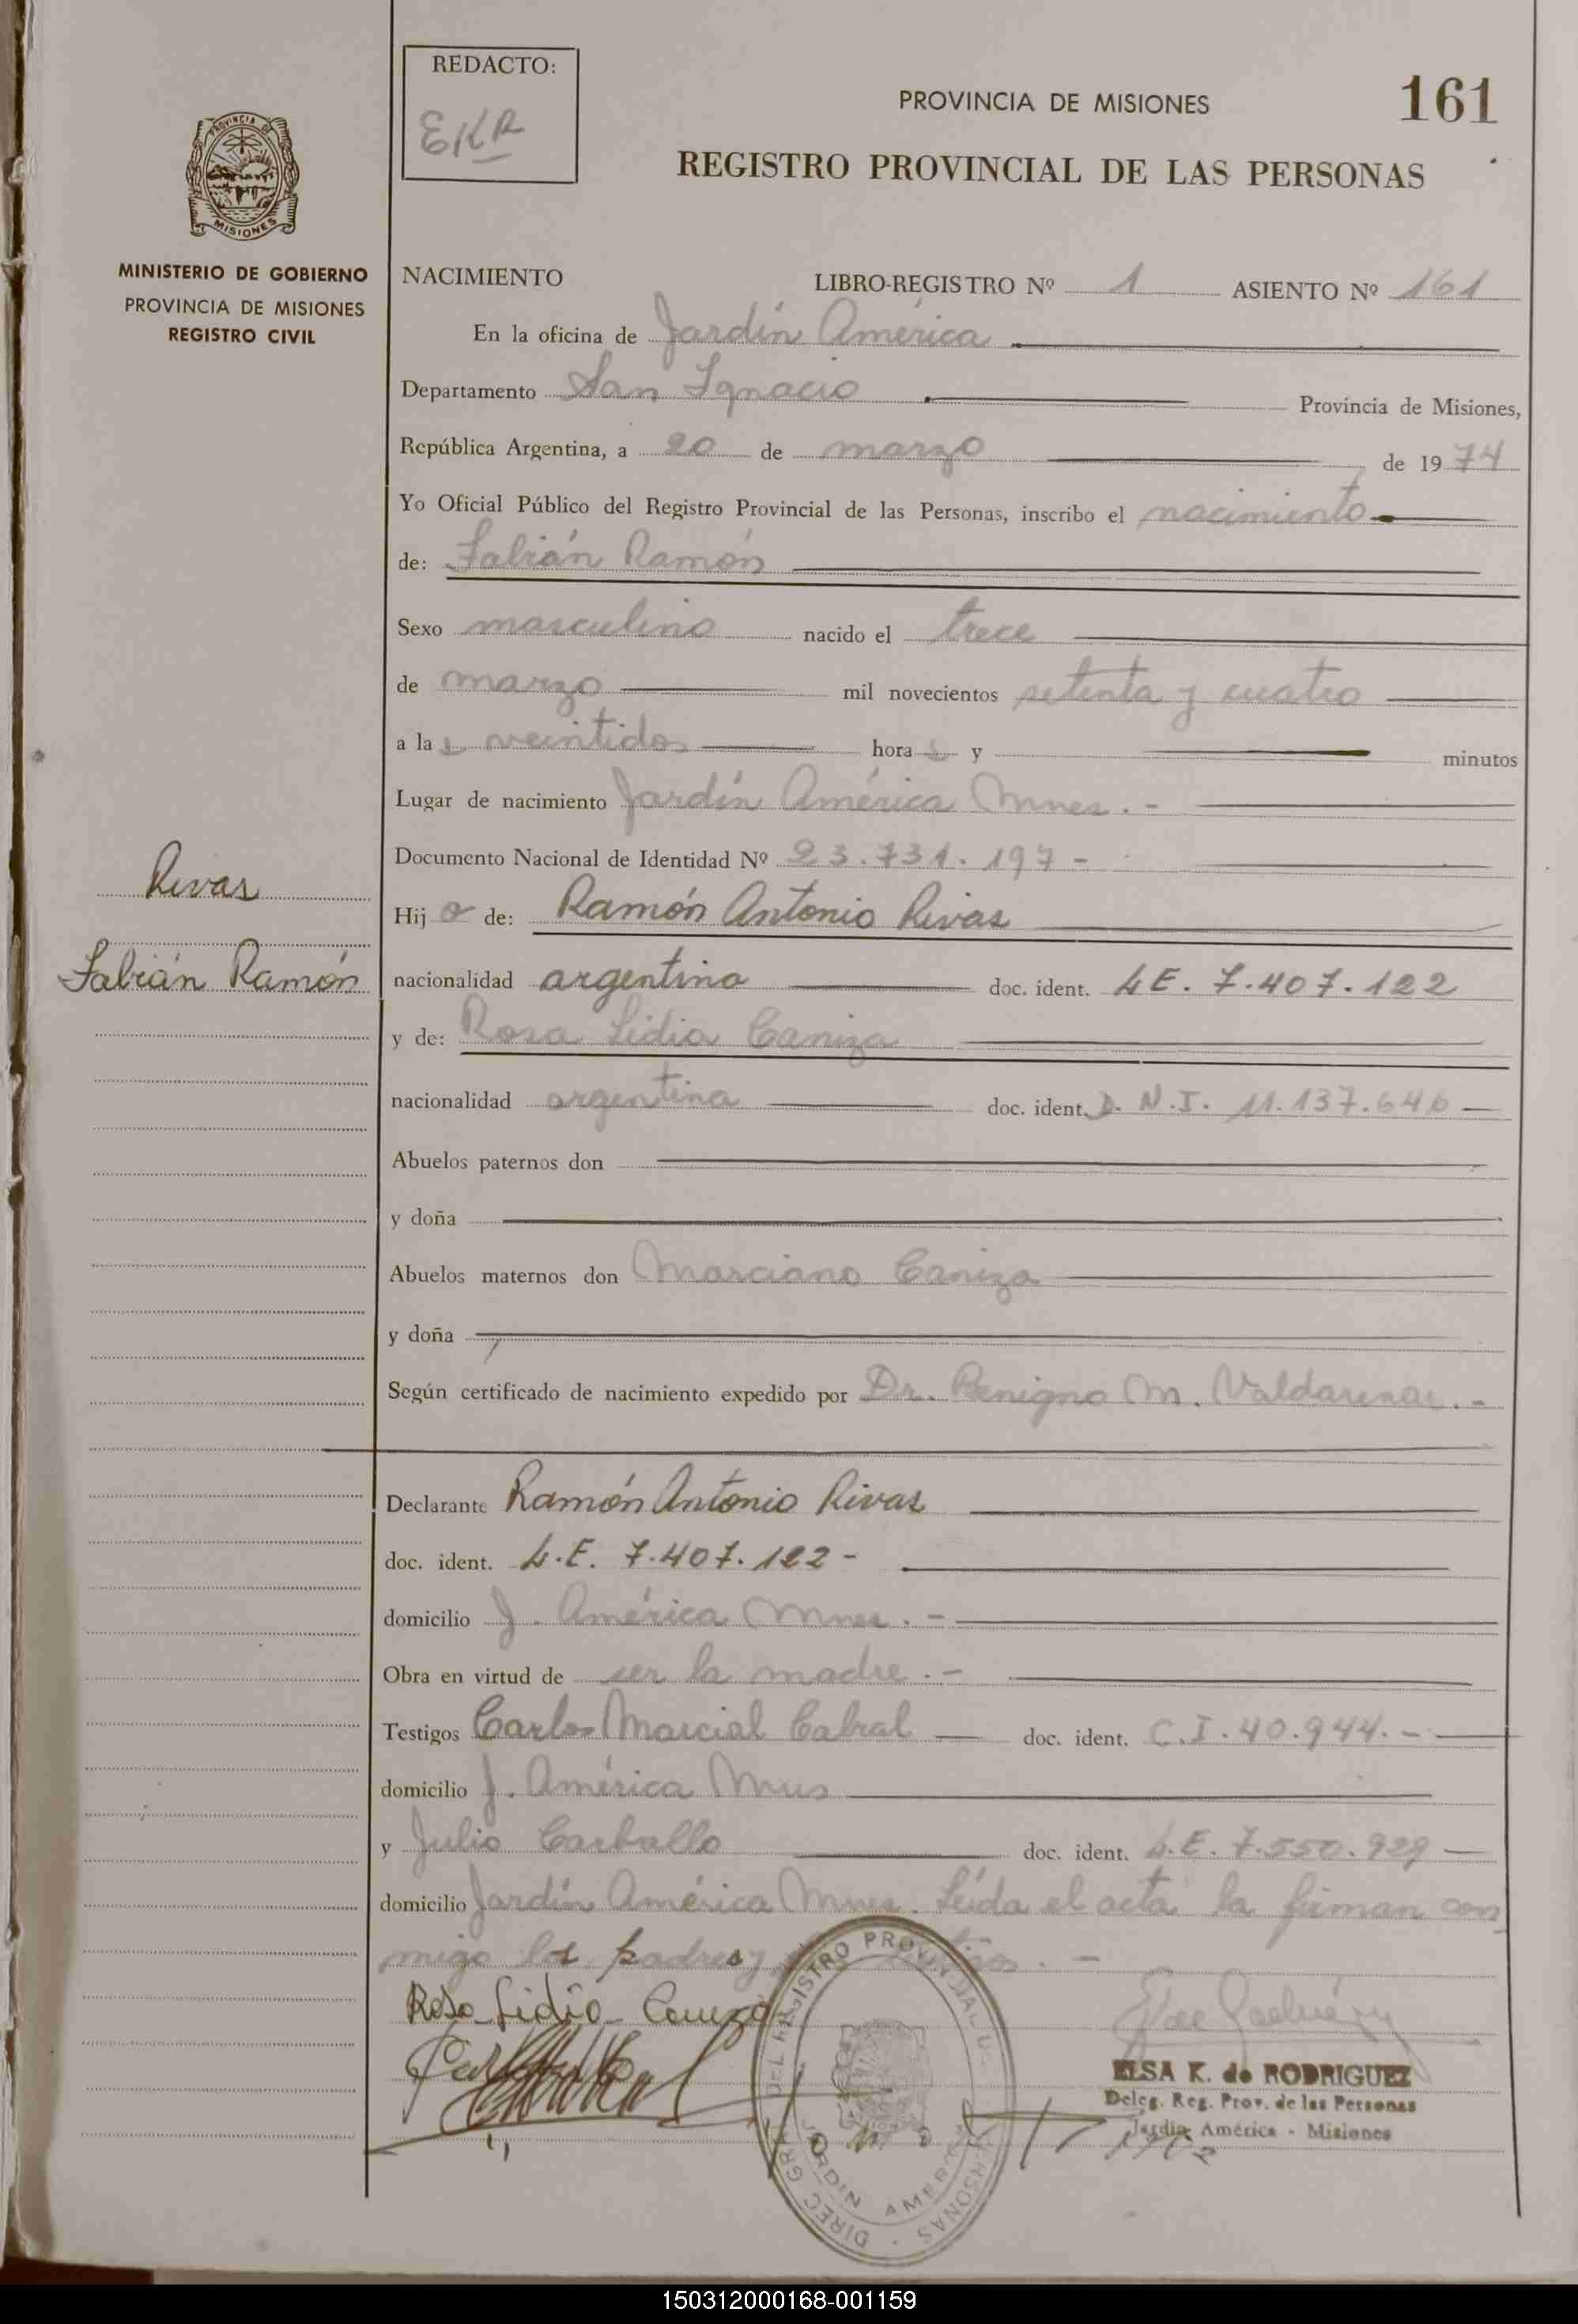 REDACTO:
EKR
PROVINCIA DE MISIONES
161
REGISTRO PROVINCIAL DE LAS PERSONAS
PROVINCIA DE
MISIONES
MINISTERIO DE GOBIERNO
PROVINCIA DE MISIONES
REGISTRO CIVIL
NACIMIENTO LIBRO-REGISTRO Nº 1 ASIENTO Nº 161
En la oficina de Jardín América
Departamento San Ignacio Provincia de Misiones,
República Argentina, a 20 de marzo de 1974
Yo Oficial Público del Registro Provincial de las Personas, inscribo el nacimiento
de: Fabián Ramón
Sexo masculino nacido el trece
de marzo mil novecientos setenta y cuatro
a las veintidos horas y minutos
Lugar de nacimiento Jardín América Mnes. -
Documento Nacional de Identidad Nº 23.731.197 -
Rivas
Hijo de: Ramón Antonio Rivas
Fabián Ramón
nacionalidad argentina doc. ident. LE. 7.407.122
y de: Rosa Lidia Caniza
nacionalidad argentina doc. ident. D.N.I. 11.137.646
Abuelos paternos don
y doña
Abuelos maternos don Marciano Caniza
y doña
Según certificado de nacimiento expedido por Dr. Benigno M. . -
Declarante Ramón Antonio Rivas
doc. ident. L.E. 7.407.122 -
domicilio J. América Mnes. -
Obra en virtud de ser la madre. -
Testigos Carlos Marcial Cabral doc. ident. C.I. 40.944. -
domicilio J. América Mnes
y Julio Carballo doc. ident. L.E. 7.550.929
domicilio Jardín América Mnes. Leída el acta la firman con
migo los padres y . -
Rosa Lidia Caniza
DIREC. GRAL. DEL REGISTRO PROVINCIAL DE PERSONAS
JARDIN AMERICA
ELSA K. de RODRIGUEZ
Deleg. Reg. Prov. de las Personas
Jardín América - Misiones
150312000168-001159